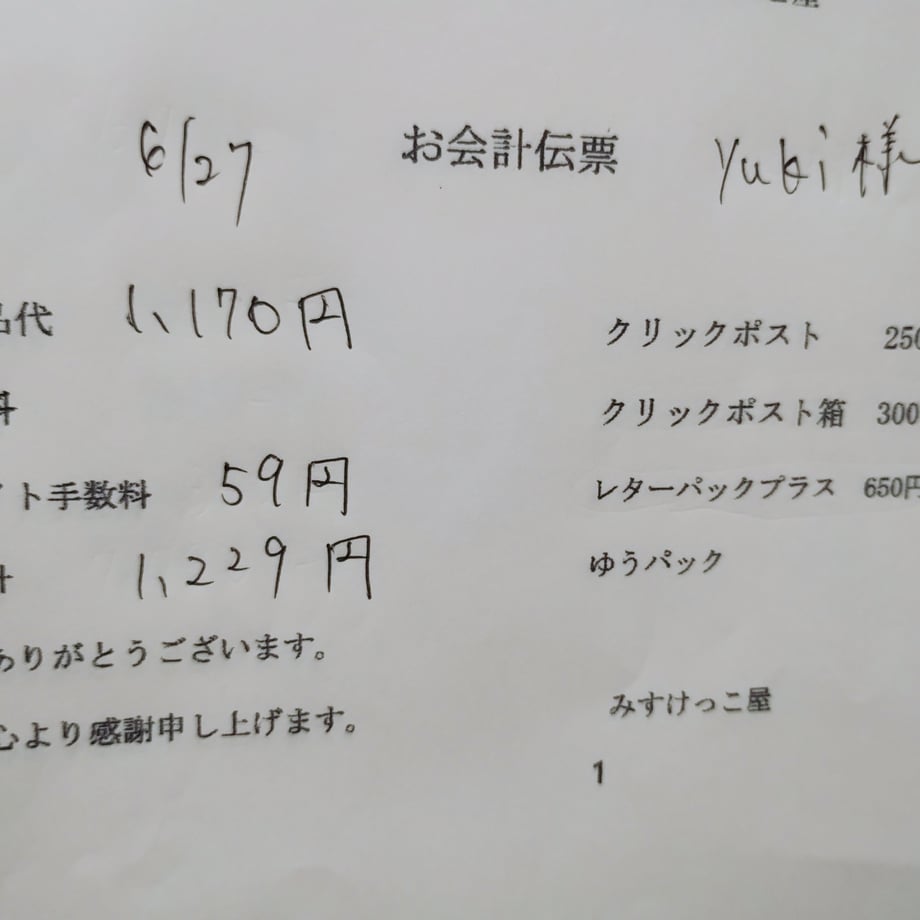 屋
6/27 お会計伝票 Yuki様
品代 1,170円 クリックポスト 250
料 クリックポスト箱 300
イト手数料 59円 レターパックプラス 650円
計 1,229円 ゆうパック
ありがとうございます。
心より感謝申し上げます。 みすけっこ屋
1